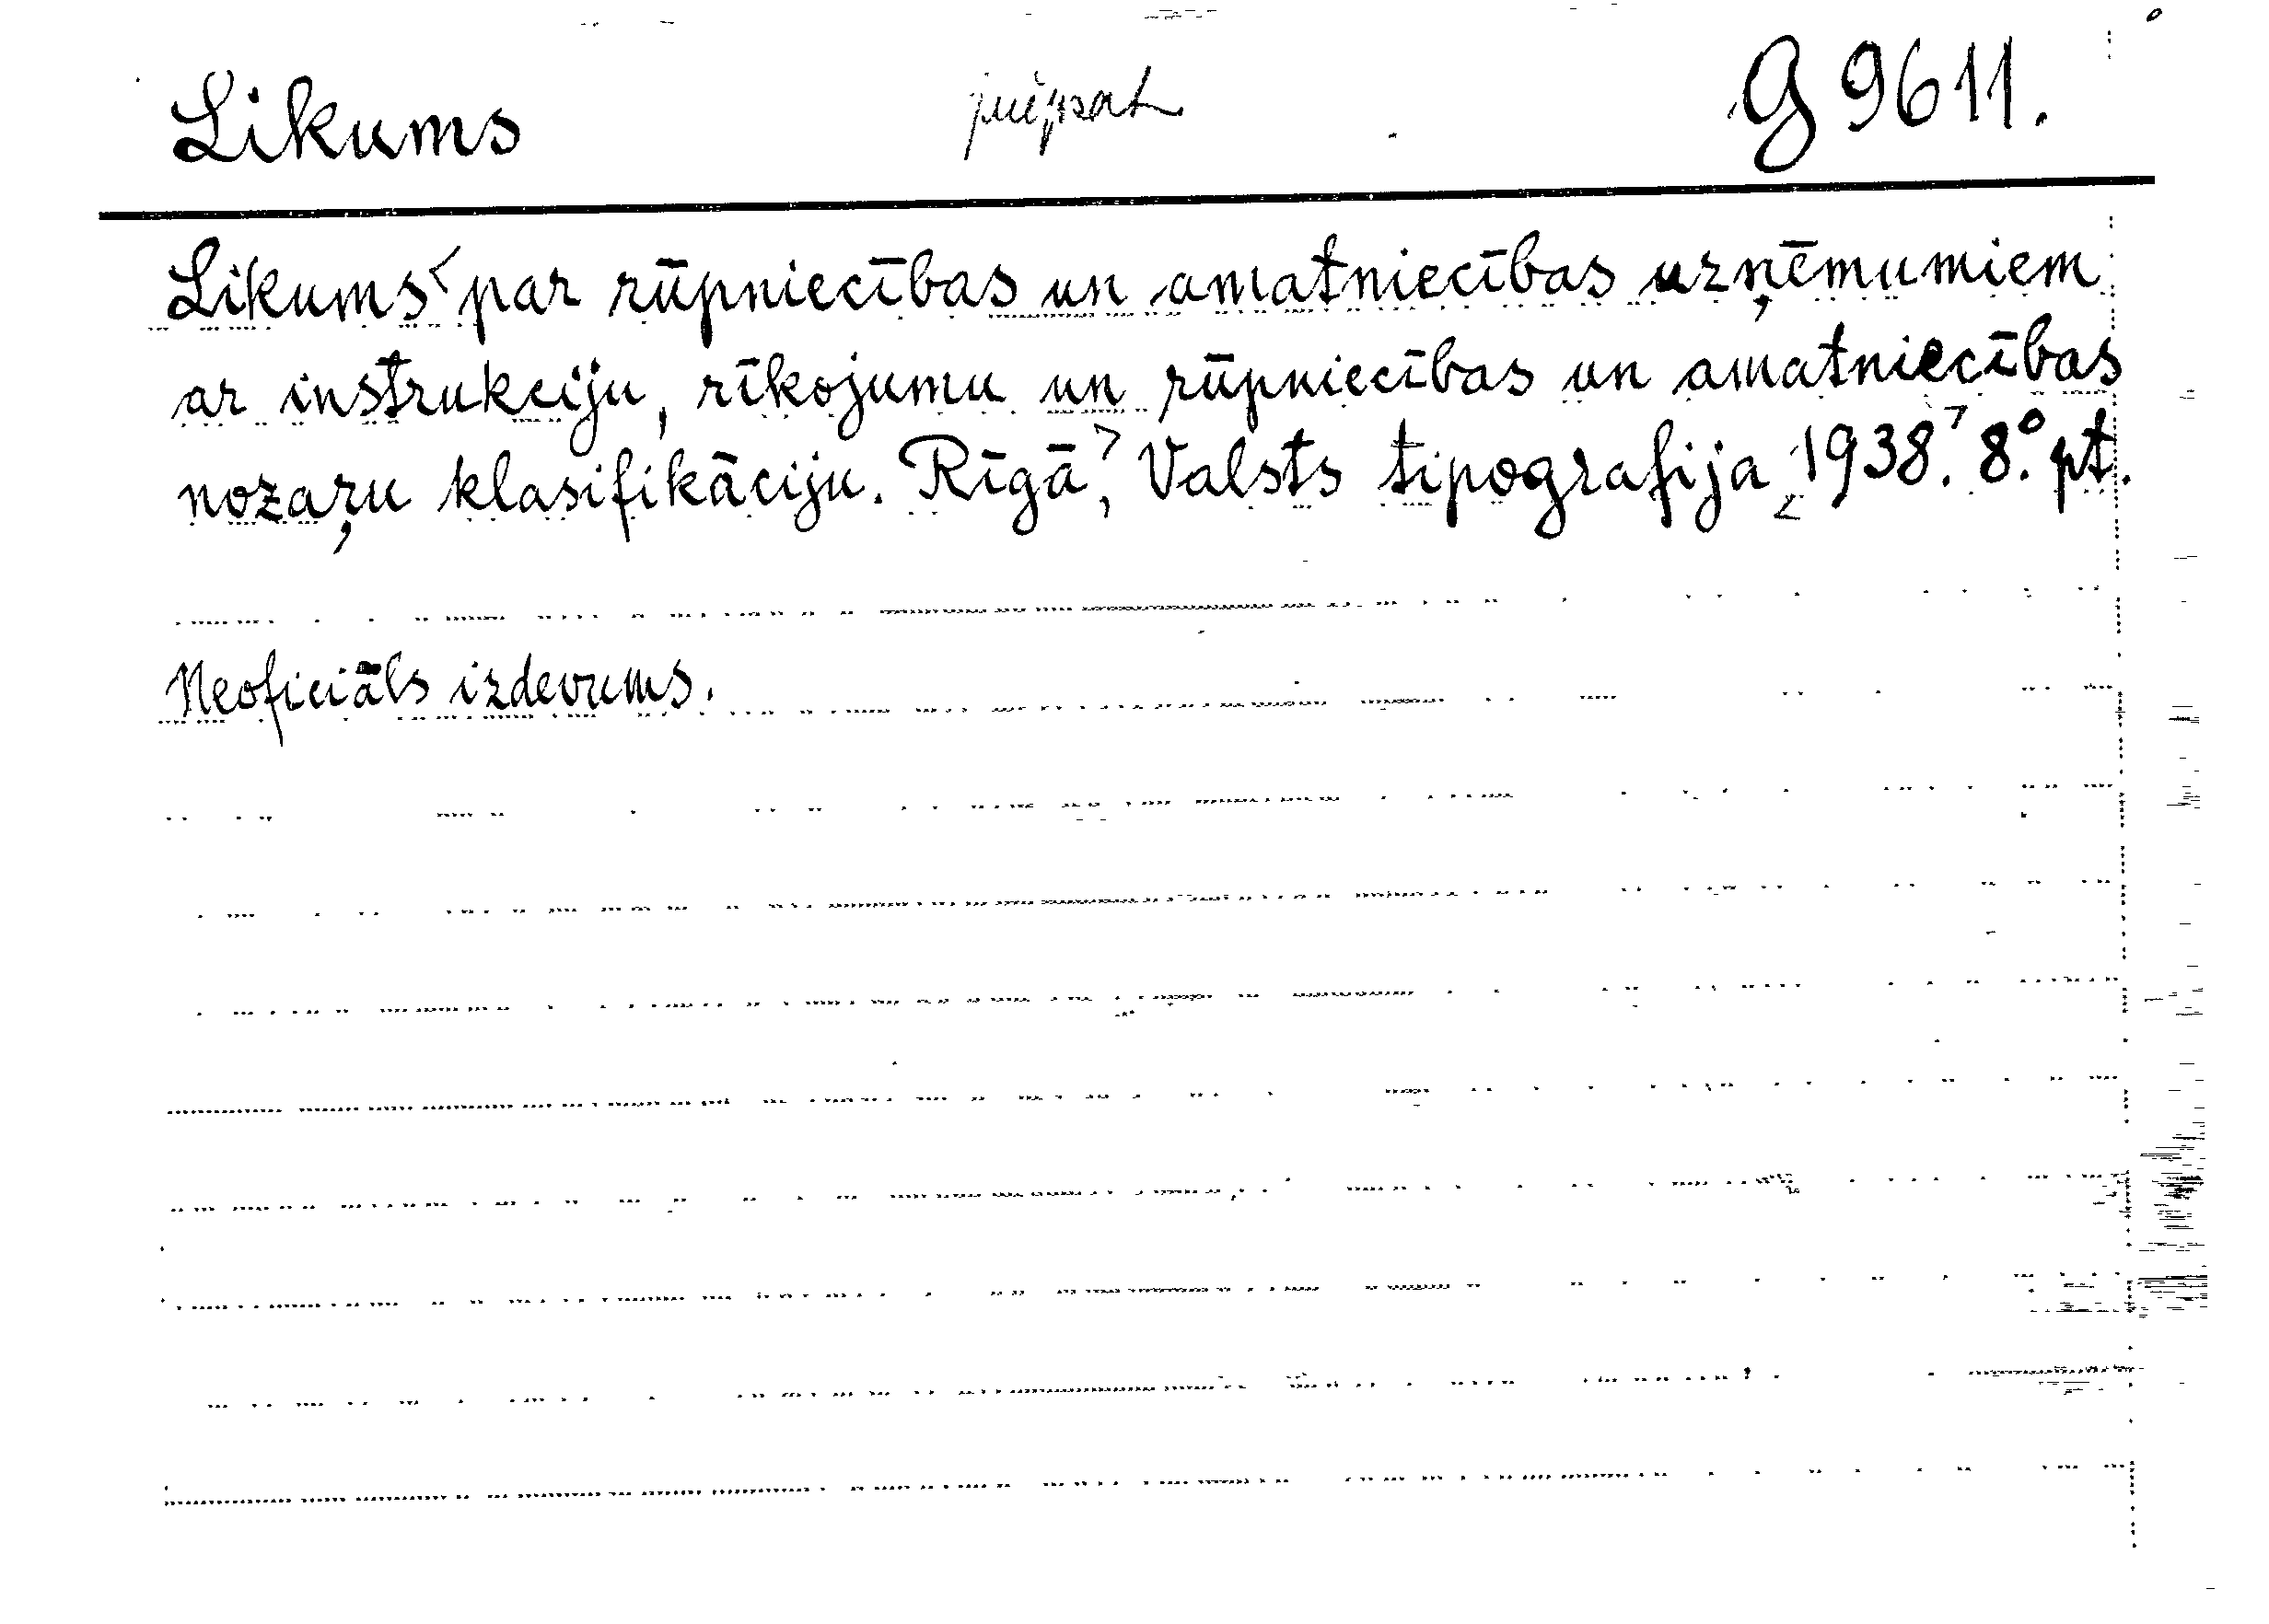 Likums G 9611.
Likums par rūpniecības un amatniecības uzņēmumiem
ar instrukciju, rīkojumu un rūpniecības un amatniecības
nozaŗu klasifikāciju. Rīgā, Valsts tipografija 1938. 8.° pt.
Neoficiāls izdevums.